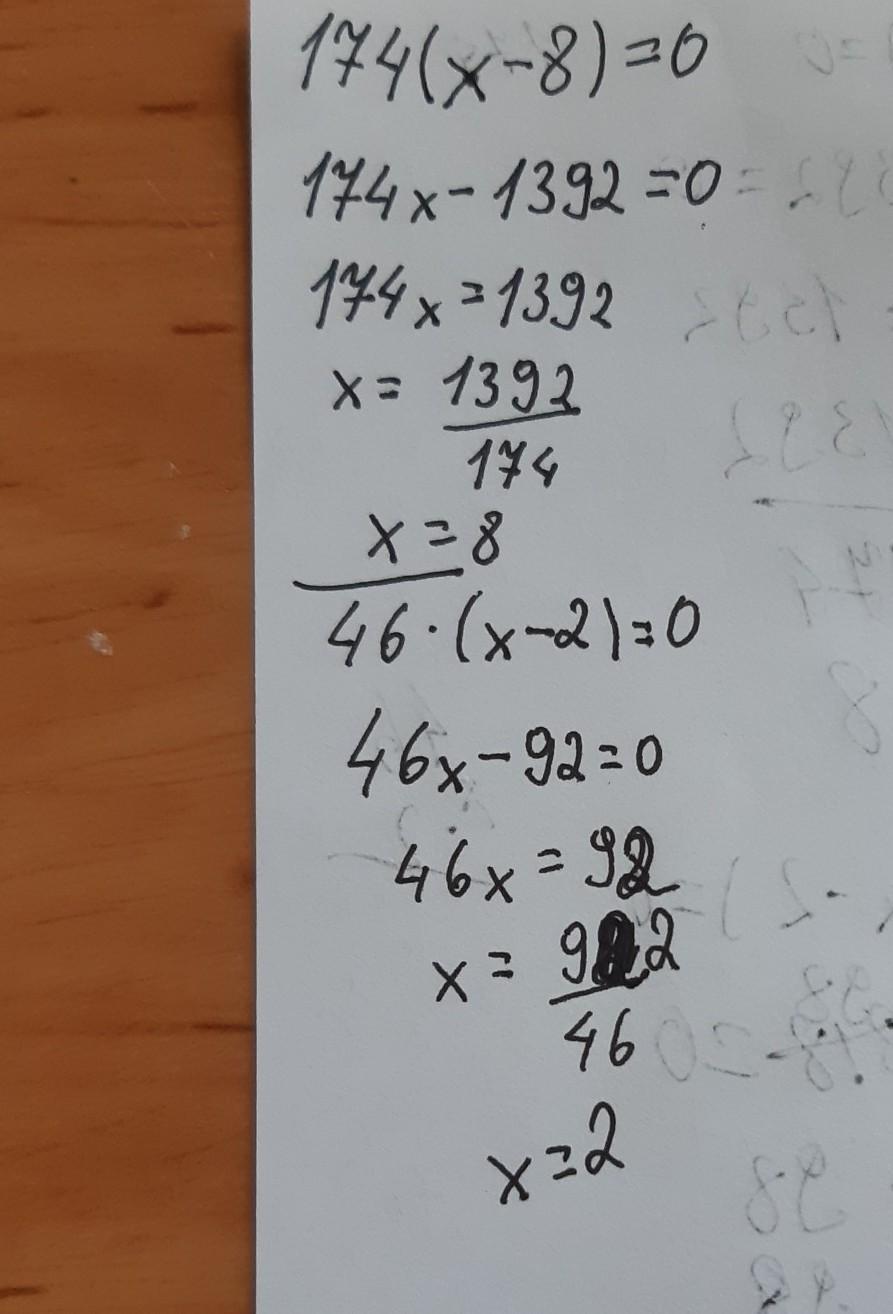 174(x-8)=0
174x-1392=0
174x=1392
x= 1392
174
x=8
46·(x-2)=0
46x-92=0
46x=92
x= 92
46
x=2